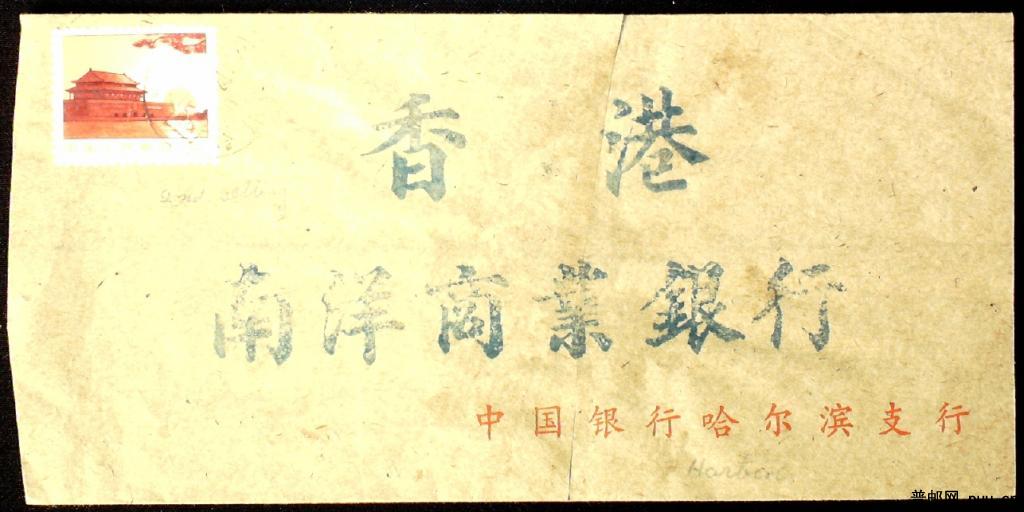 香 港
南洋商業銀行
中国银行哈尔滨支行
Harbin
普邮网 puu.cn